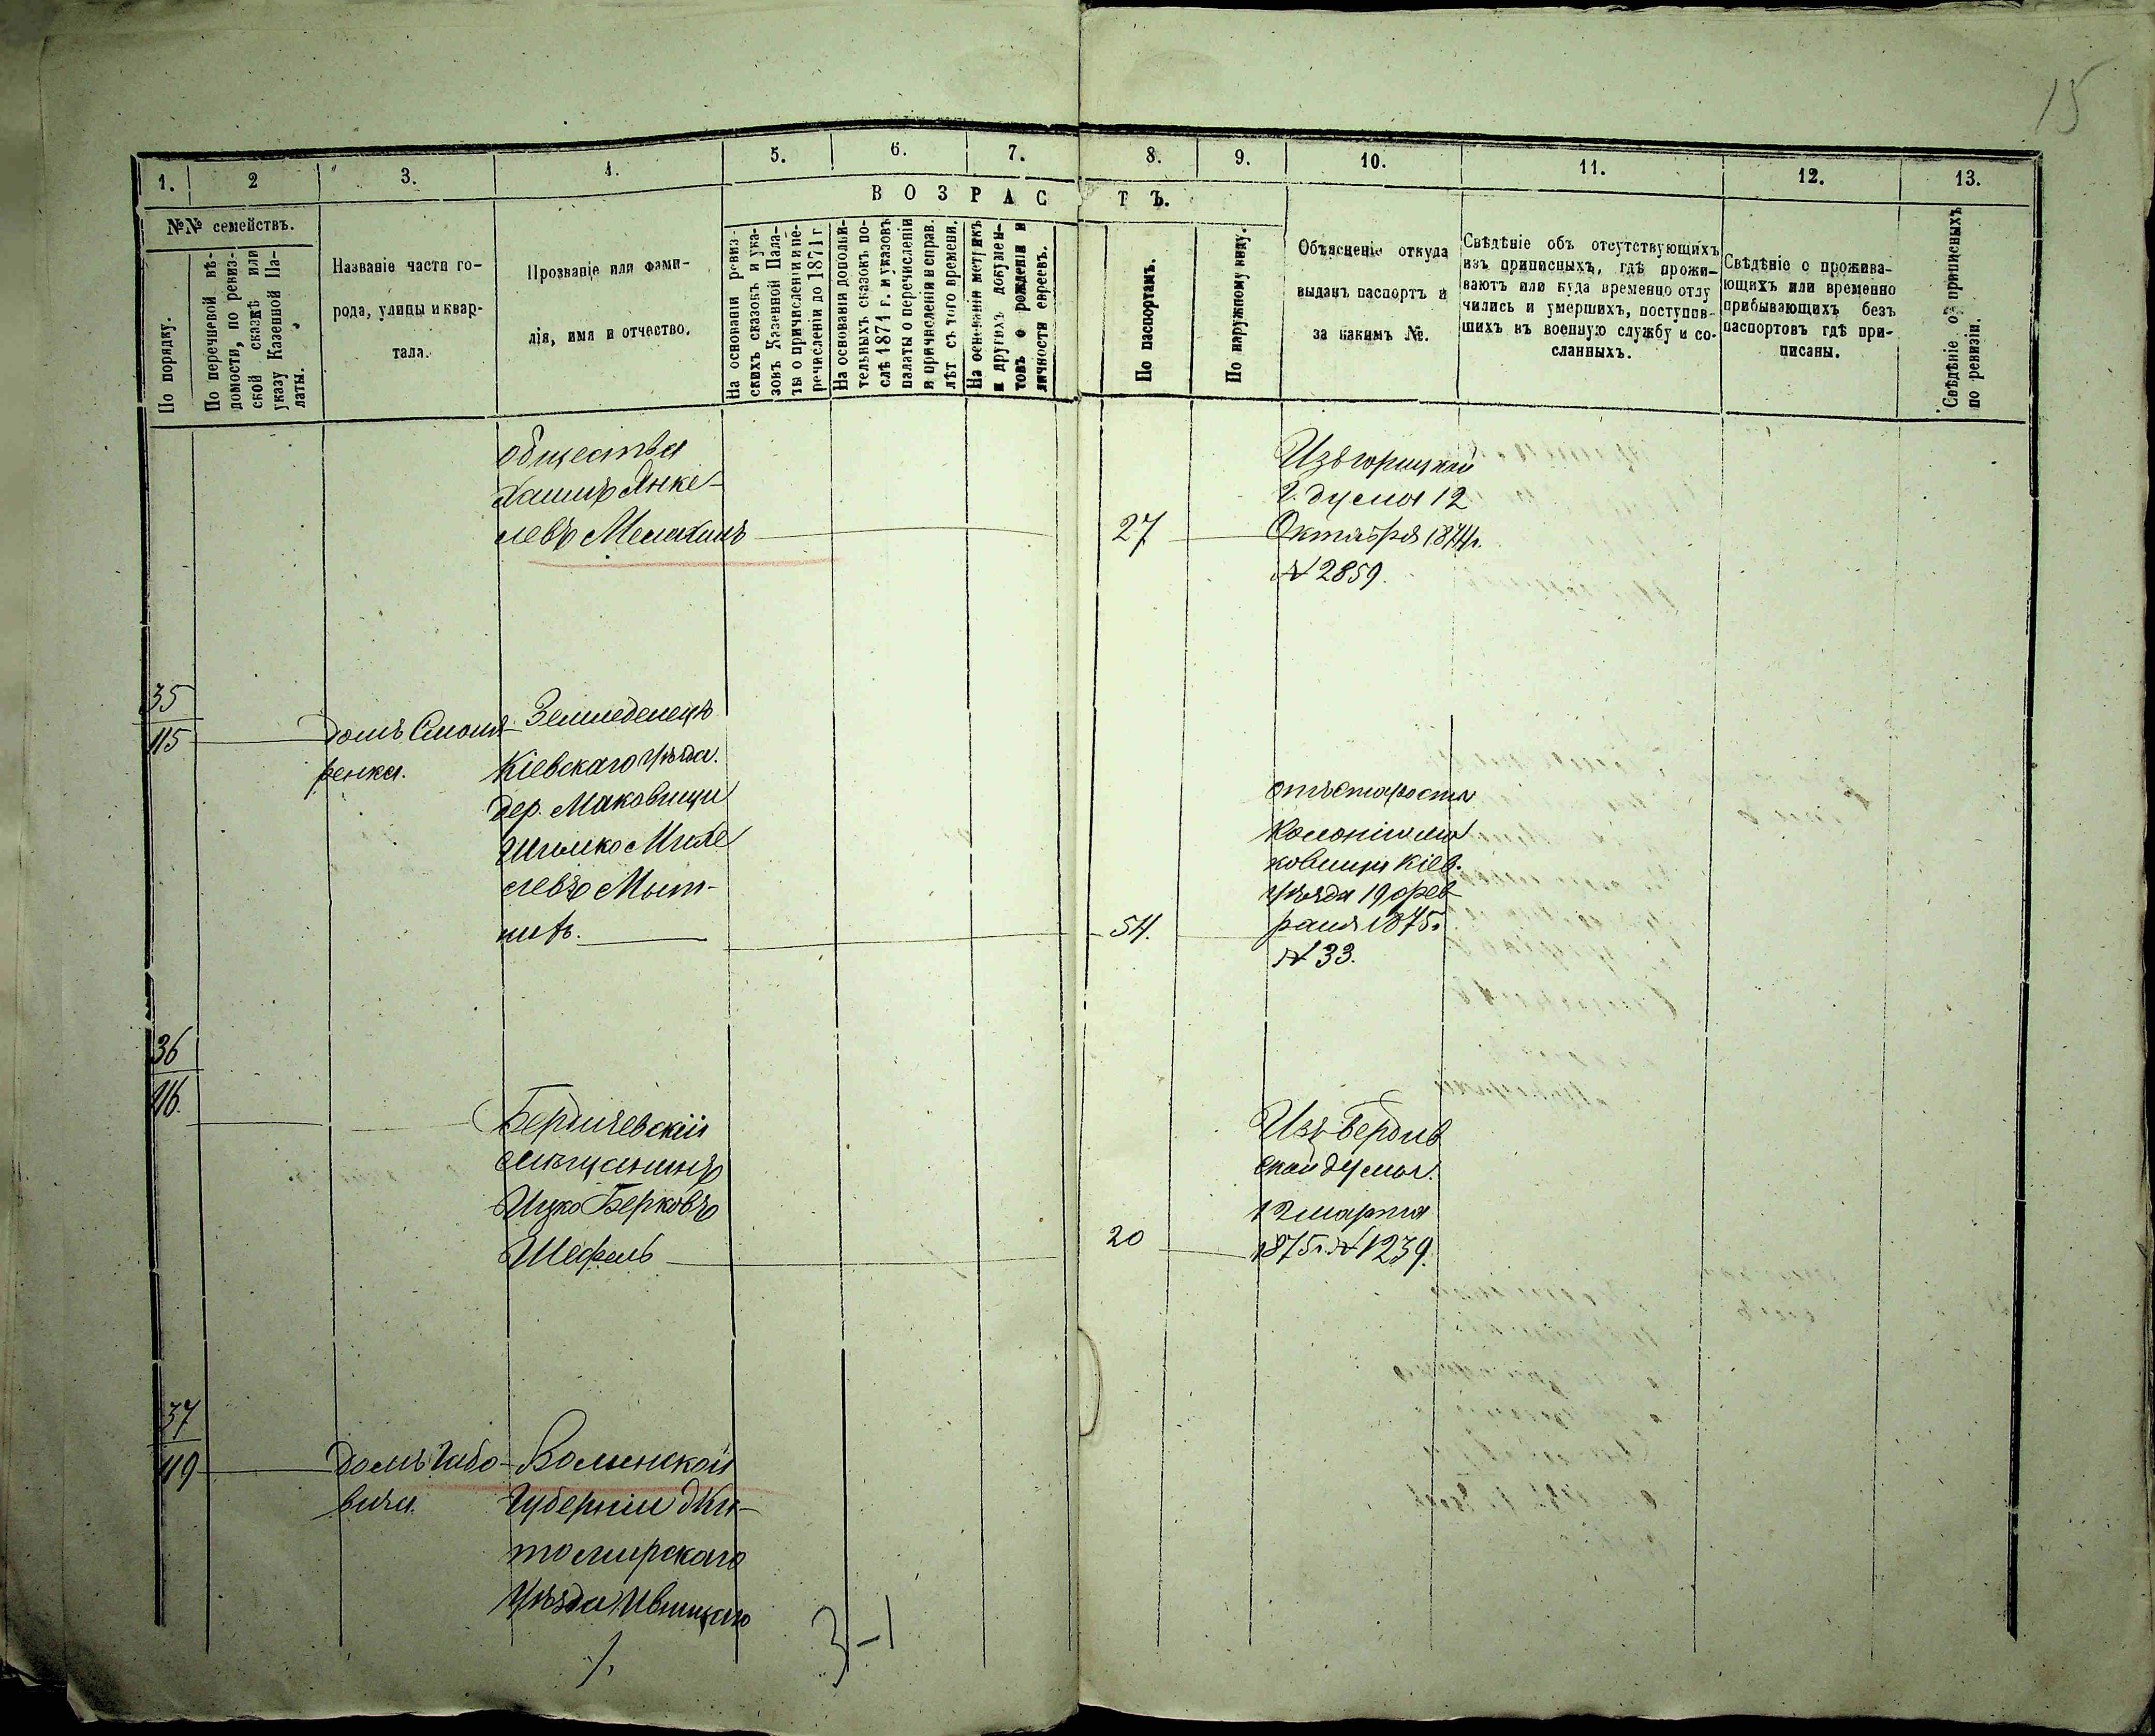 15
1. 2 3. 4. 5. 6. 7. 8. 9. 10. 11. 12. 13.
ВОЗРАСТЪ.
№№ семействъ.
По порядку.
По перечневой вѣ-
домости, по ревиз-
ской сказкѣ или
указу Казенной Па-
латы.
Названіе части го-
рода, улицы и квар-
тала.
Прозваніе или фами-
лія, имя и отчество.
На основаніи ревиз-
скихъ сказокъ и ука-
зовъ Казенной Пала-
ты о причисленіи и пе-
речисленіи до 1871 г
На основаніи дополни-
тельныхъ сказокъ по-
слѣ 1874 г. и указовъ
палаты о перечисленіи
и причисленіи и справ.
лѣт съ того времени.
На основаніи метрикъ
и другихъ докумен-
товъ о рожденіи и
личности евреевъ.
По паспортамъ.
По наружному виду.
Объясненіе откуда
выданъ паспортъ и
за какимъ №.
Свѣдѣніе объ отсутствующихъ
изъ приписныхъ, гдѣ прожи-
ваютъ или куда временно отлу
чились и умершихъ, поступив-
шихъ въ военную службу и со-
сланныхъ.
Свѣдѣніе о прожива-
ющихъ или временно
прибывающихъ безъ
паспортовъ гдѣ при-
писаны.
Свѣдѣніе о приписныхъ
по ревизіи.
общества
Хаимъ Янке-
левъ
27
Изъ
г. думы 12
Октября 1874г.
№ 2859.
35
115
домъ Смоля-
ренка.
Земледелецъ
Кіевскаго уѣзда.
дер. Маковищи
Шломко Михе
левъ Мыт-
никъ.
54.
отъ старосты
колоніи Ма
ковищи Кіев.
уѣзда 19 фев-
раля 1875г.
№ 33.
36
116.
Бердичевскій
мѣщанинъ
Ицко Берковъ
Шефель
20
Изъ Бердич
ской думы.
12 марта
1875г. № 1239.
37
119
домъ Габо-
вича.
Волынской
Губерніи Жи-
томирскаго
уѣзда Ивницкаго
1.
3-1